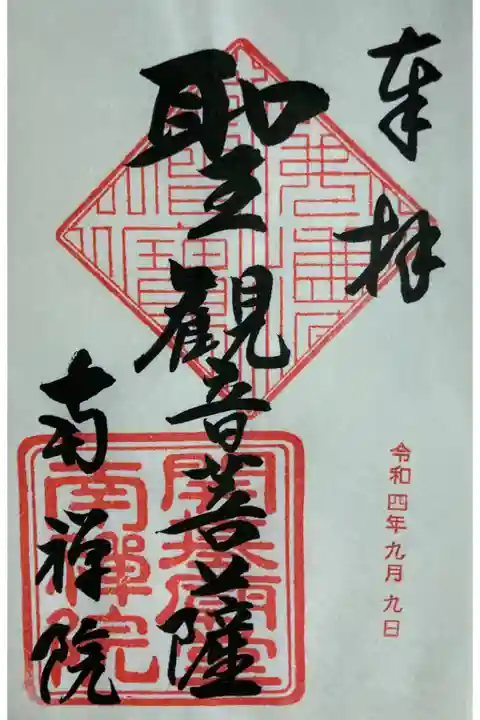 奉拝
聖観音菩薩
南禅院
令和四年九月九日
開基廟堂
南禪院